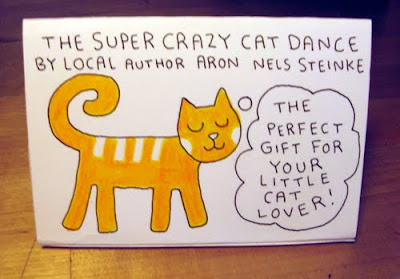 THE SUPER CRAZY CAT DANCE
BY LOCAL AUTHOR ARON NELS STEINKE
THE
PERFECT
GIFT FOR
YOUR
LITTLE
CAT
LOVER!